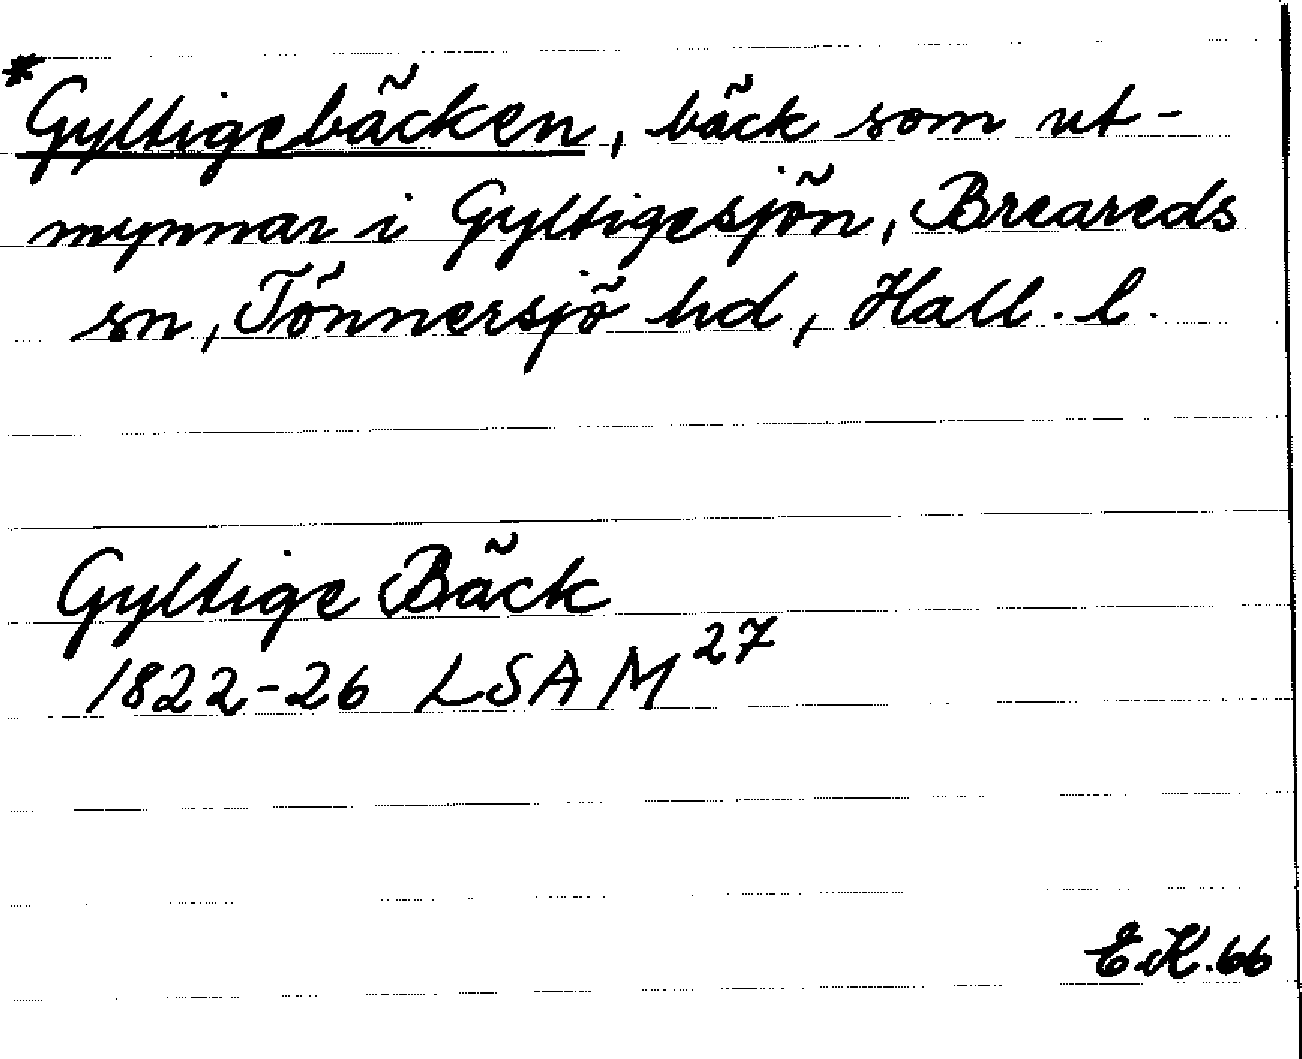 *Gyltigebäcken, bäck som ut-
mynnar i Gyltigesjön, Breareds
sn, Tönnersjö hd, Hall. l.
Gyltige Bäck
1822-26 LSA M27
E.K.66